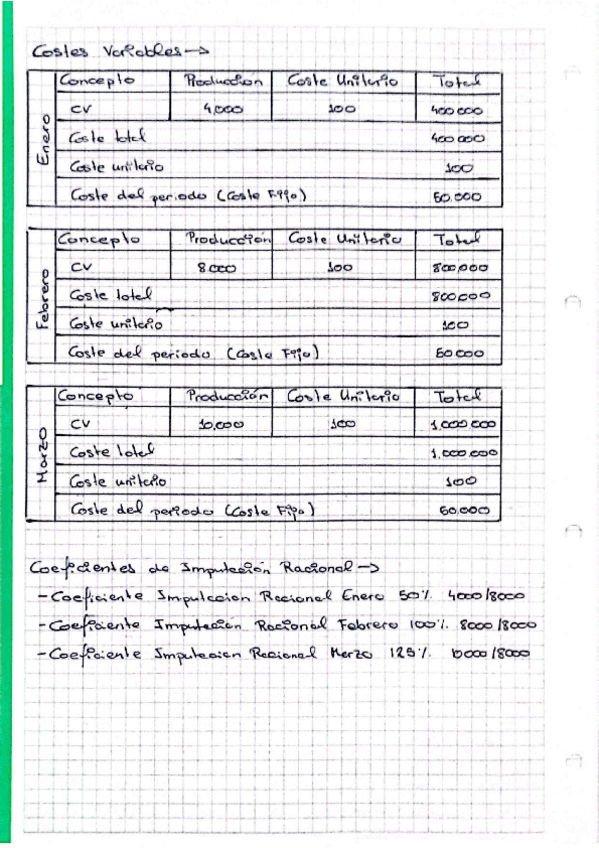 Costes Variables →
Enero
Concepto Producción Coste Unitario Total
CV 4.000 100 400 000
Coste total 400 000
Coste unitario 100
Coste del periodo (Coste Fijo) 50.000
Febrero
Concepto Producción Coste Unitario Total
CV 8.000 100 800,000
Coste total 800000
Coste unitario 100
Coste del periodo (Coste Fijo) 50000
Marzo
Concepto Producción Coste Unitario Total
CV 10.000 100 1.000 000
Coste total 1.000.000
Coste unitario 100
Coste del periodo (Coste Fijo) 50.000
Coeficientes de Imputación Racional →
- Coeficiente Imputación Racional Enero 50% 4000/8000
- Coeficiente Imputación Racional Febrero 100% 8000/8000
- Coeficiente Imputación Racional Marzo 125% 10000/8000